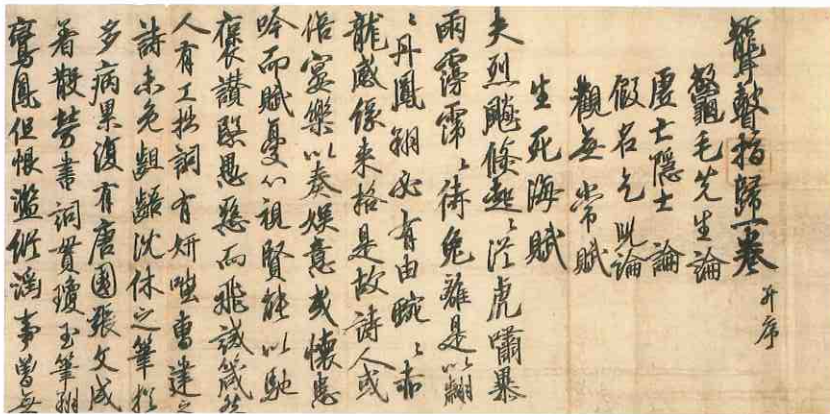 聾瞽指歸一卷 并序
鼈毛先生論
虛士隱士論
假名乞児論
觀無常賦
生死海賦
夫烈飈倏起〻從虎嘯暴
雨霶霈〻待兔離是以翩
〻丹鳳翔必有由蜿〻赤
龍感緣来格是故詩人或
倍宴樂以奏娛意或懷患
吟而賦憂心視賢能以馳
褒讃愍愚惡而飛誡箴然
人有工拙詞有妍嗤曹建之
詩未免齟齬沈休之筆猶
多病累復有唐國張文成
著散勞書詞貫瓊玉筆翔
鸞鳳但恨濫縱淫事曽無